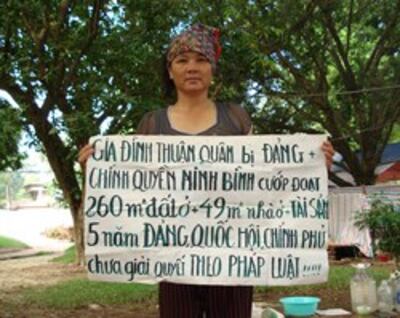 GIA ĐÌNH THUÂN QUÂN bị ĐẢNG +
CHÍNH QUYỀN NINH BÌNH CƯỚP ĐOẠT
260 m² đất ở + 49 m² nhà ở + TÀI SẢN
5 năm ĐẢNG, QUỐC HỘI, CHÍNH PHỦ
chưa giải quyết THEO PHÁP LUẬT !!!!!